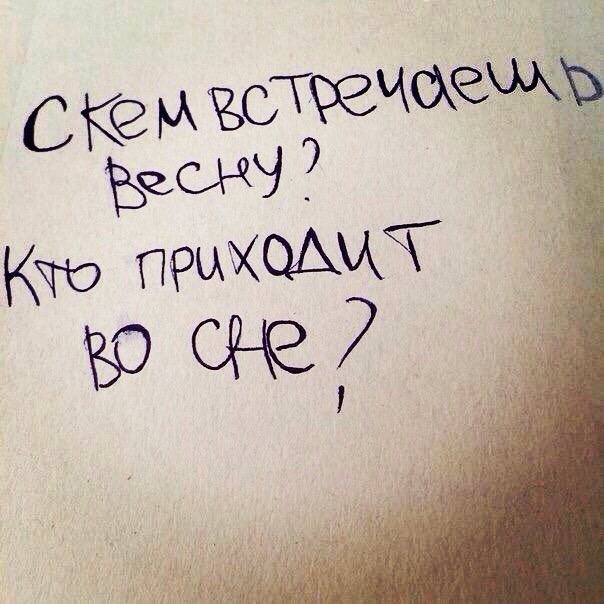 С кем встречаешь
весну?
Кто приходит
во сне?